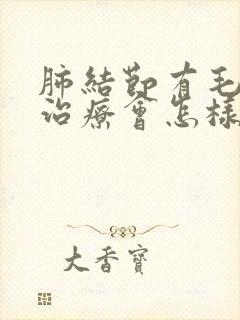 肺結節有毛
治療會怎樣
大香寶